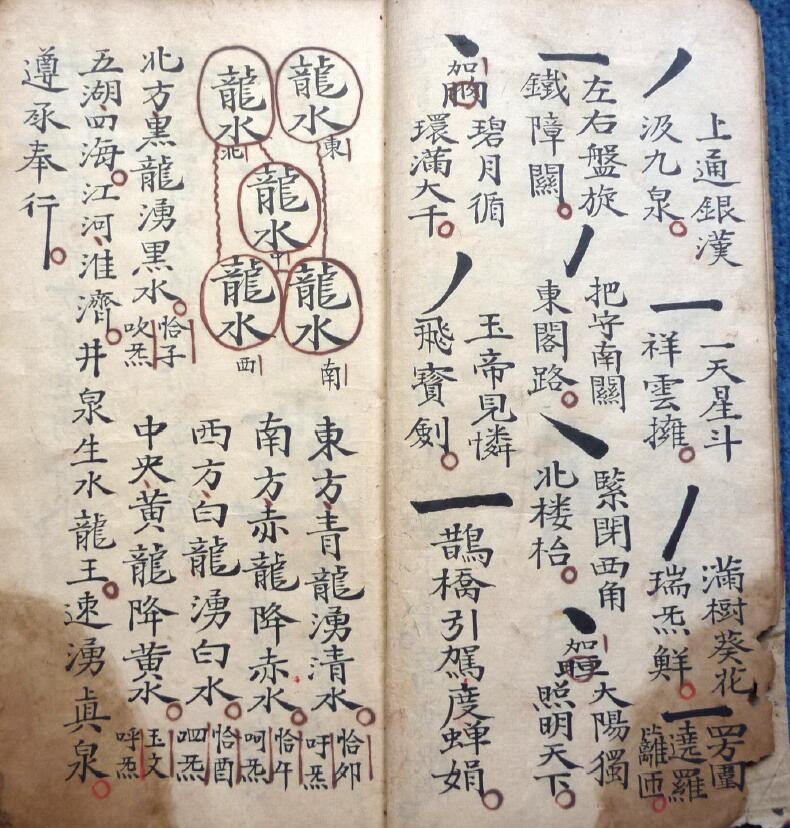 上通銀漢
汲九泉
一天星斗
祥雲擁
滿樹葵花
瑞炁鮮
圍
遶羅
籬匝
左右盤旋
鐵障關
把守南關
東閣路
緊閉西角
北楼枱
加
大陽獨
照明天下
加
碧月循
環滿大千
玉帝見憐
飛寶劍
鵲橋引駕度蝉娟
龍水東
龍水北
龍水中
龍水南
龍水西
東方青龍湧清水
恰卯
吁炁
南方赤龍降赤水
恰午
呵炁
西方白龍湧白水
恰酉
呬炁
中央黃龍降黃水
玉文
呼炁
北方黒龍湧黒水
恰子
吹炁
五湖四海江河淮濟井泉生水龍王速湧真泉
遵承奉行